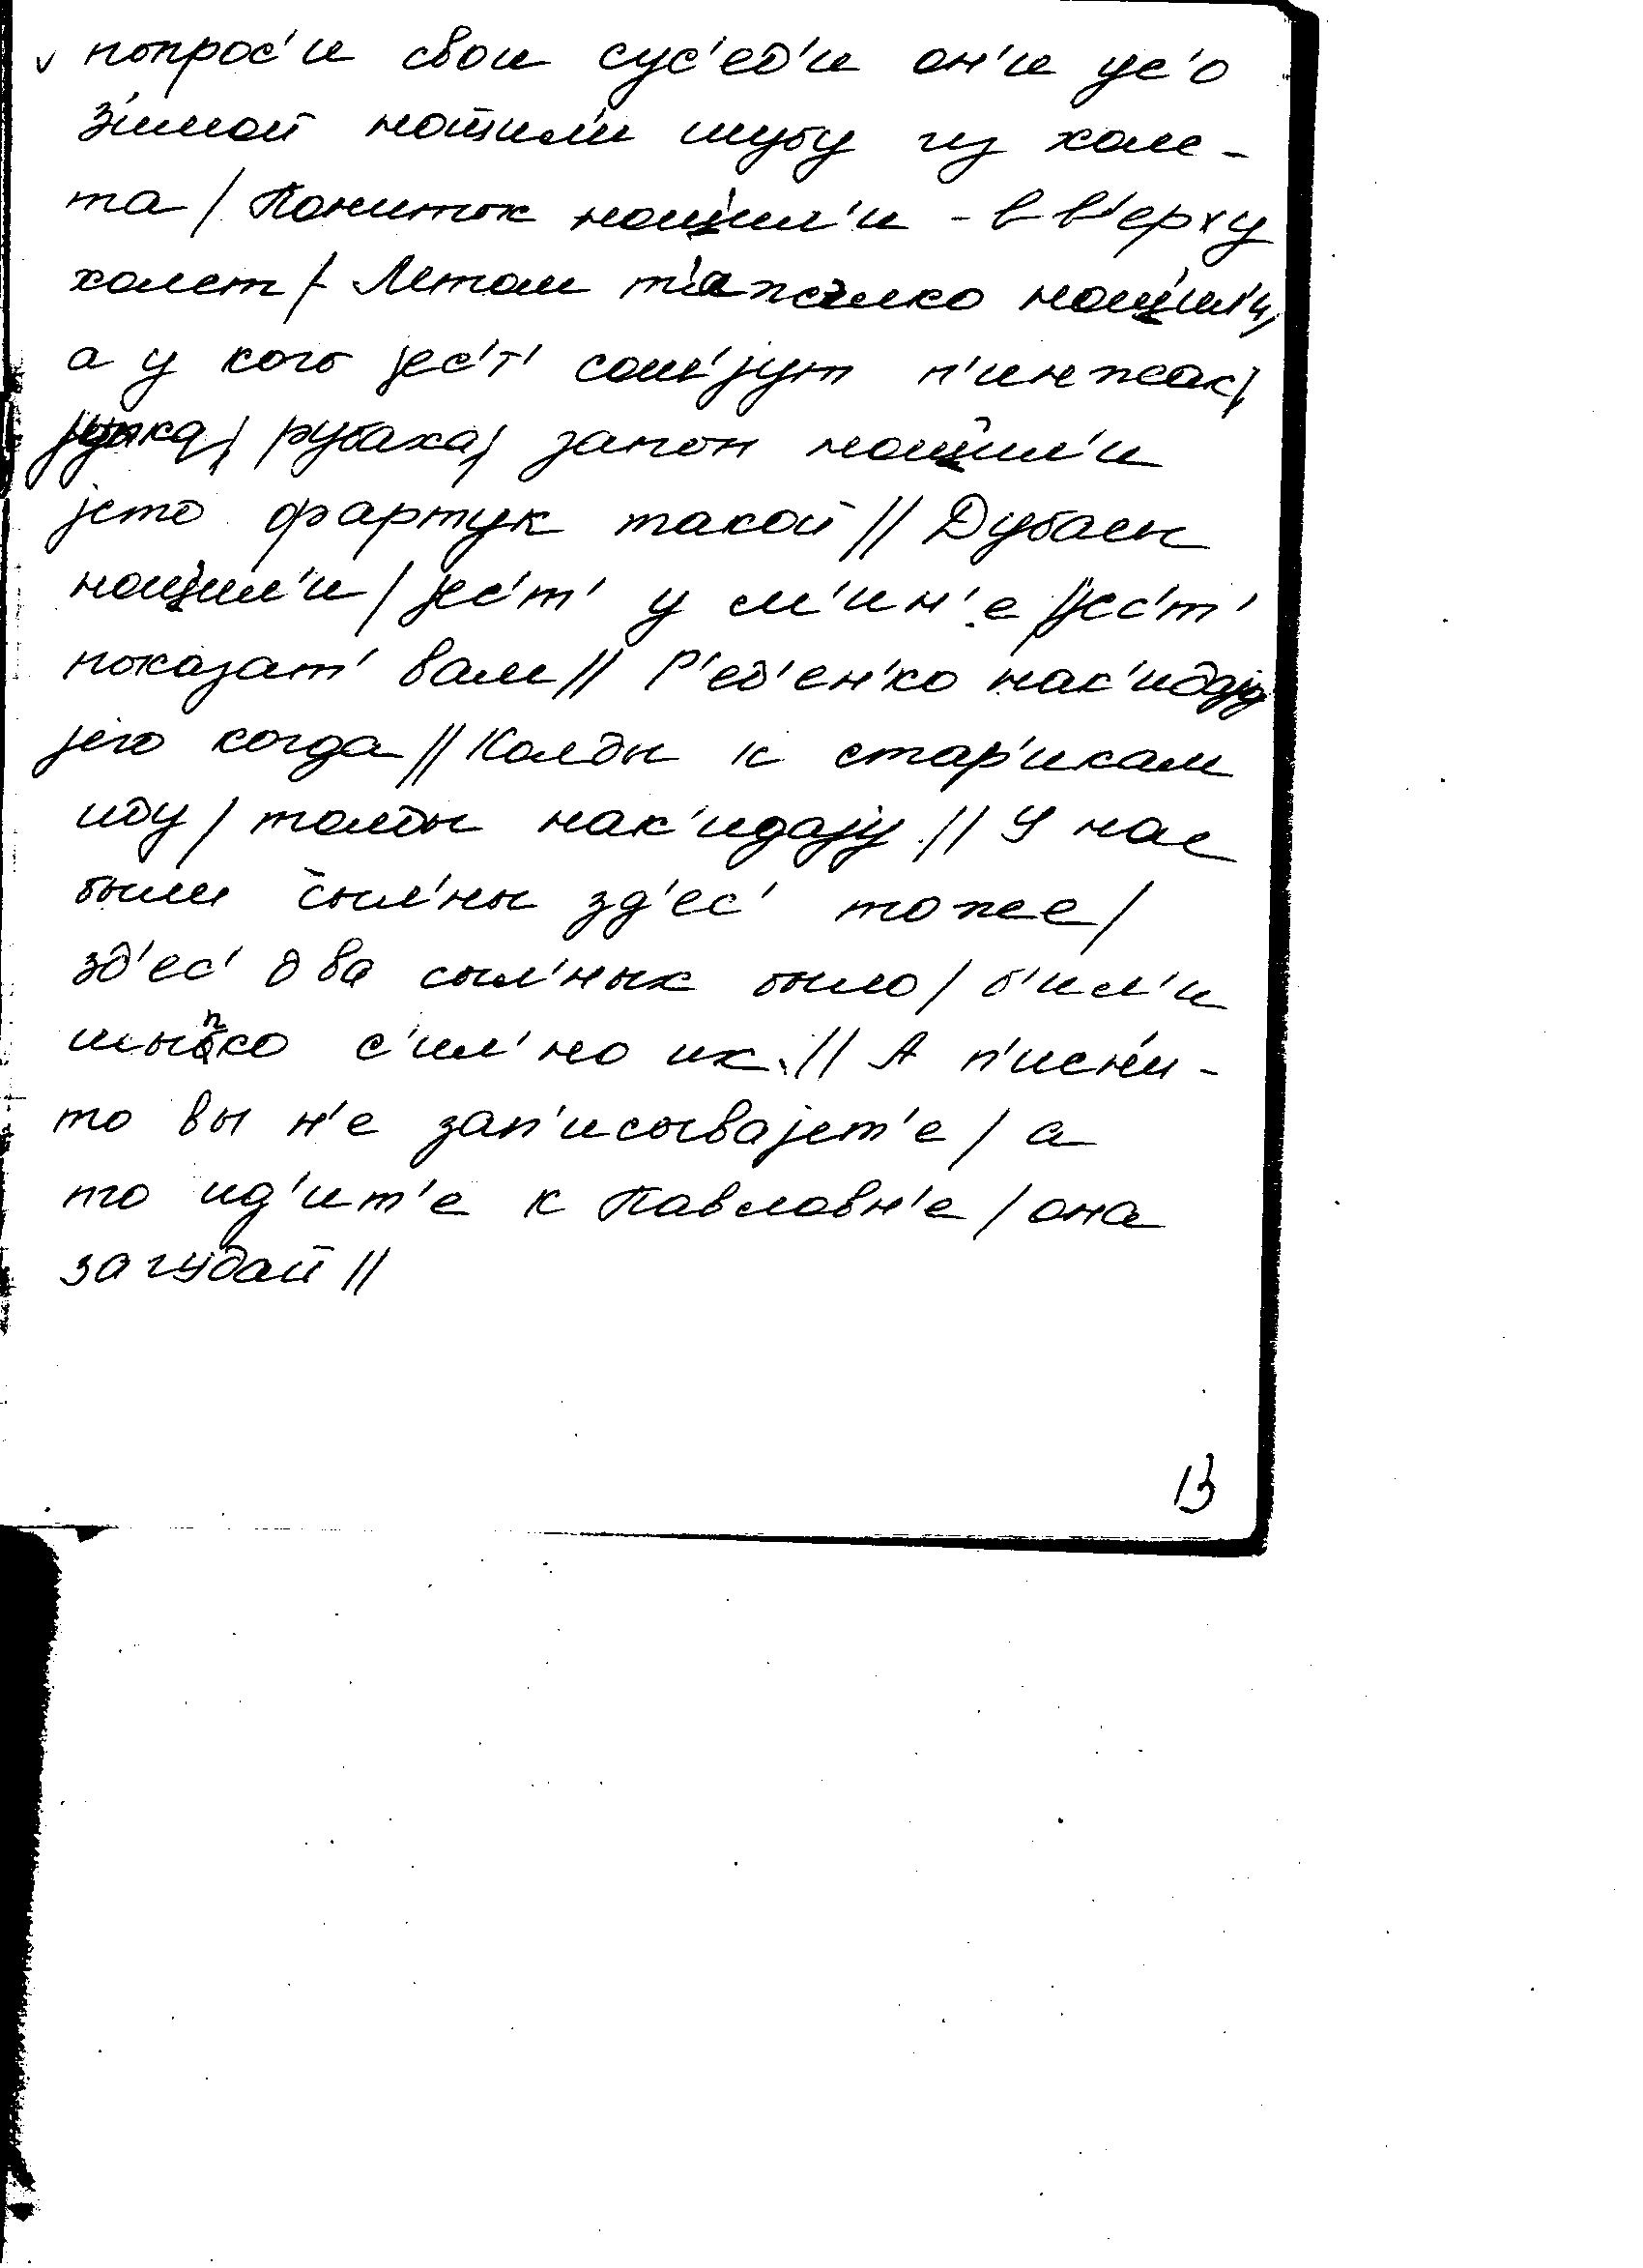 попрос'и свои сус'ед'и он'и ус'о
з'имой нотшил'и шубу из холс-
та / Пониток нощил'и - в в'ерху
холст / Летом т'а жолко нощил'и,
а у кого јес'т' сош'јут п'инжак /
јупка / рубаха / запон нощил'и
јето фартук такой // Дубасы
нощил'и / јес'т' у м'ин'е / јес'т'
показат' вам // Р'ед'ен'ко нак'идају
јего когда // Колды к стар'икам
иду / толды нак'идају // У нас
были сыл'ны зд'ес' тоже /
зд'ес' два сыл'ных было / б'ил'и
шыпко с'ил'но их // А п'исн'и-
то вы н'е зап'исывајет'е / а
то ид'ит'е к Павловн'е / она
загудай //
13